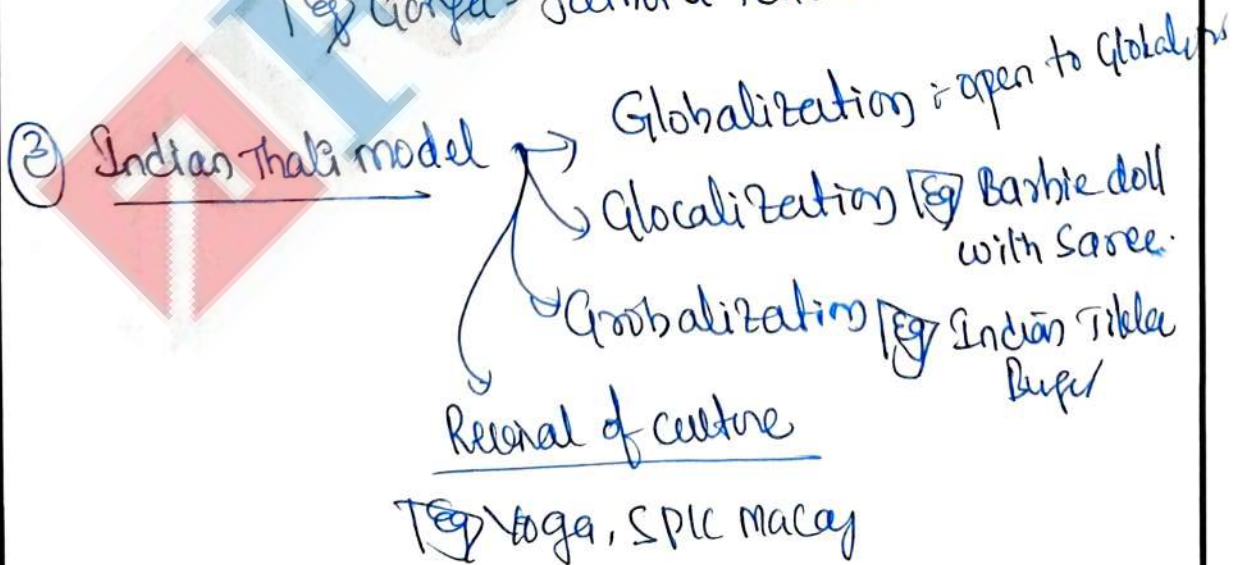 Eg Ganga-
③ Indian Thali model → Globalization :- open to
Glocalization Eg Barbie doll
with Saree.
Grobalization Eg Indian Tikka
Revival of culture
Eg Yoga, SPIC Macay